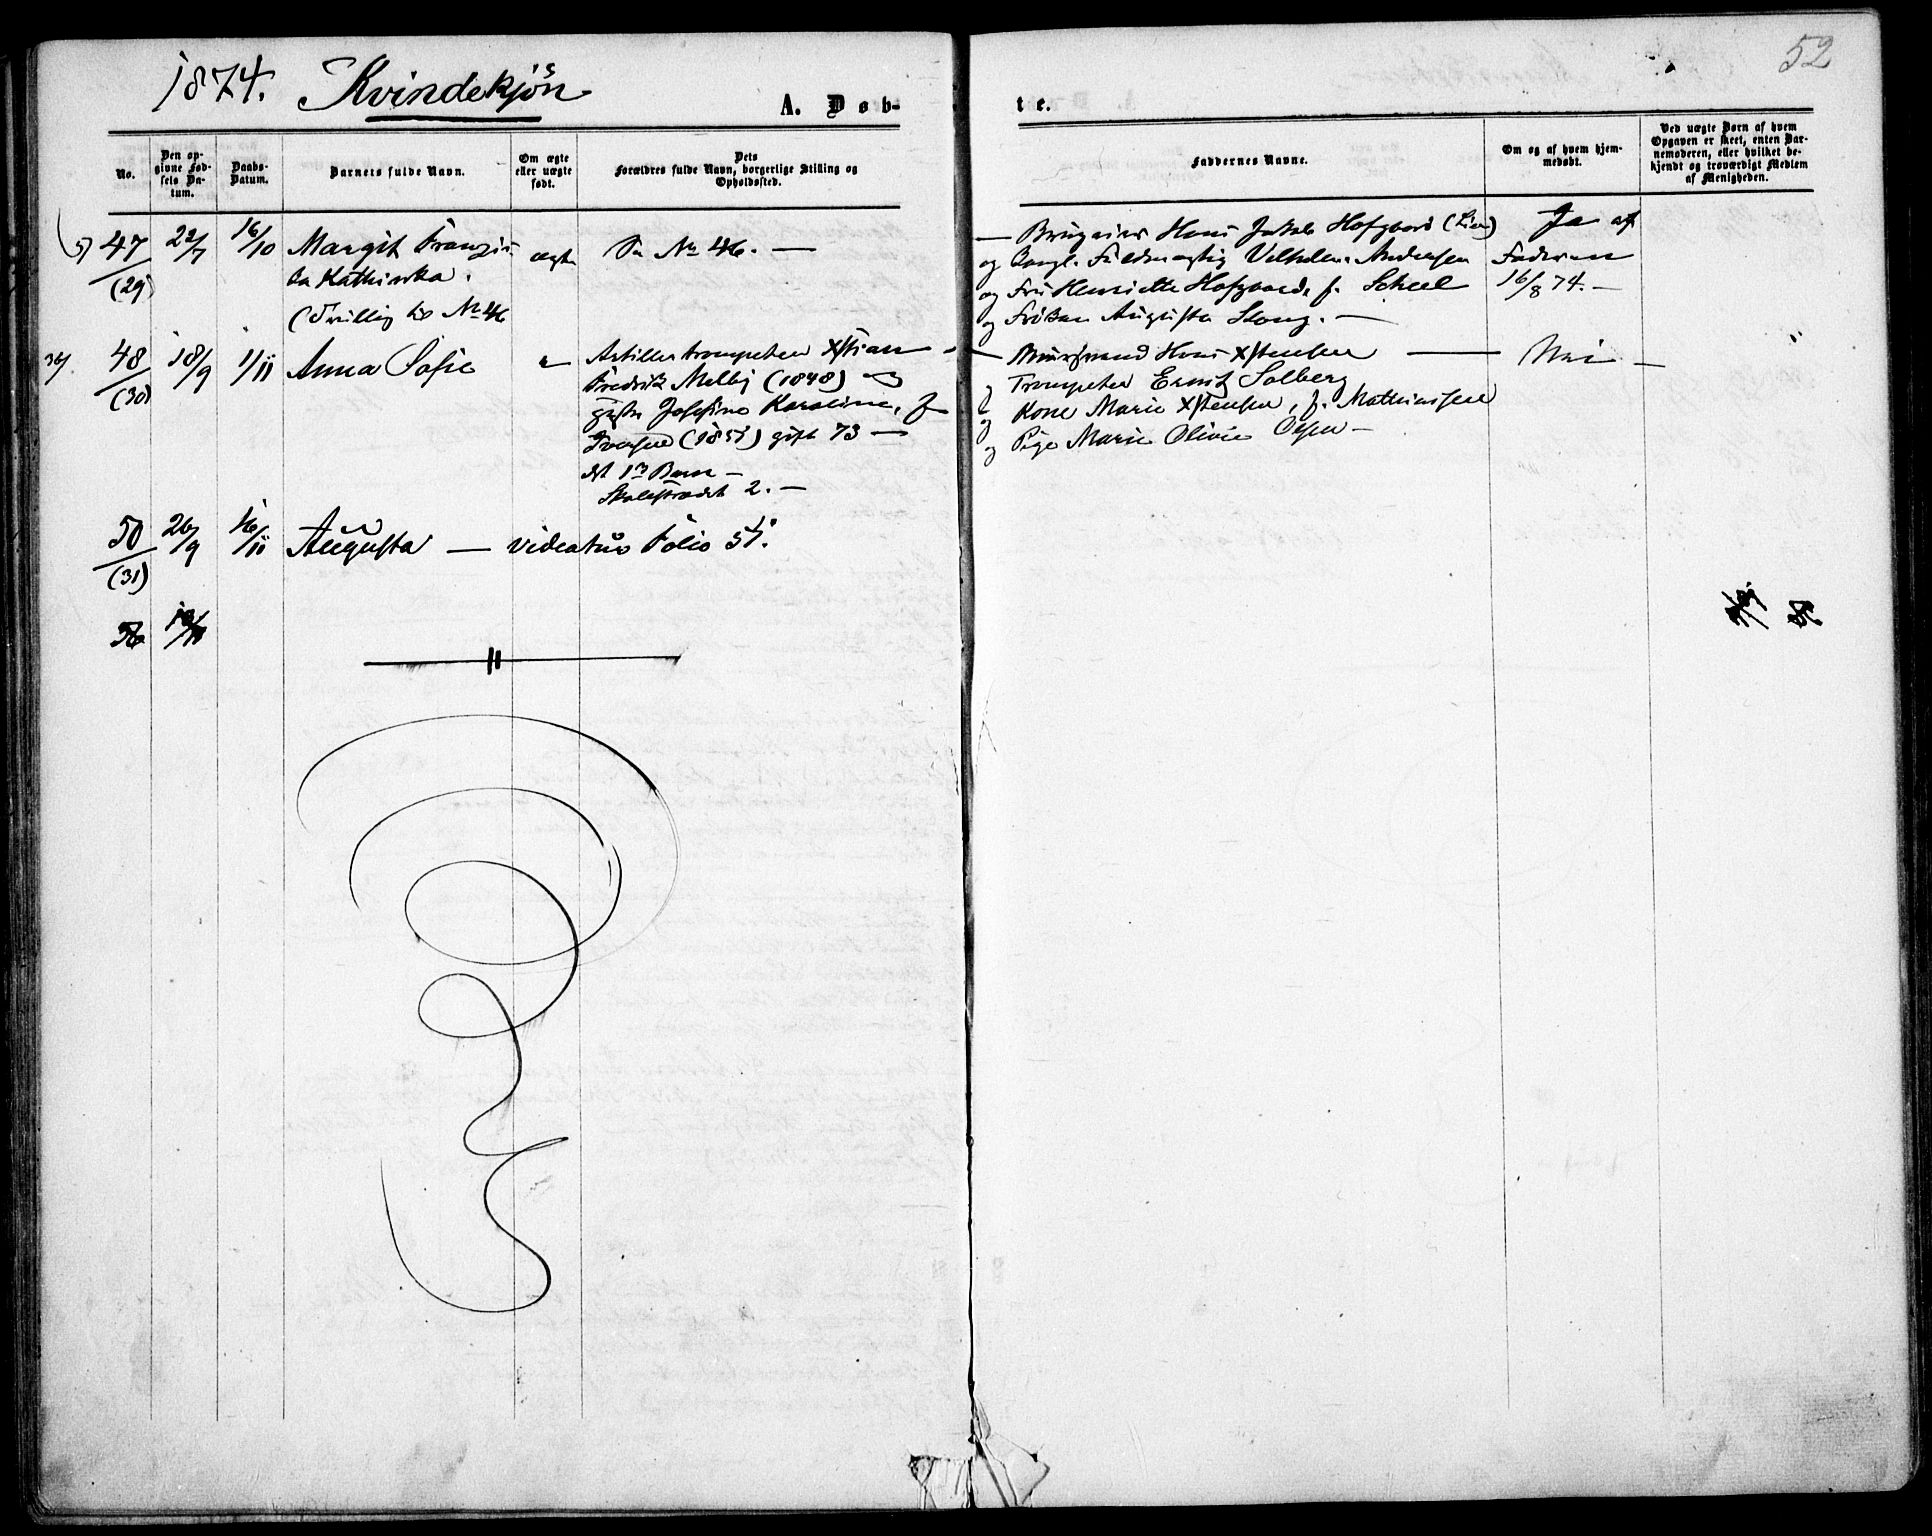 1874. Kvindekjön
52
A. Døb-
te.
No.
Den op-
givne Fød-
sels Da-
tum.
Daabs-
Datum.
Barnets fulde Navn.
Om ægte
eller uægte
født.
Dets
Forældres fulde Navn, borgerlige Stilling og
Opholdssted.
Faddernes Navne.
Om og af hvem hjem-
medøbt.
Ved uægte Børn af hvem
Opgaven er skeet, enten Bar-
nemoderen, eller hvilket be-
kjendt og troværdigt Medlem
af Menigheden.
47
(29)
22/7
16/10
Margit Franzis-
ka Kathinka.
(Tvilling til No 46
ægte
Se No 46. —
— Hans Jakob Hofgaard (Lier)
og Fuldmægtig Vilhelm Andersen
og Fru Henriette Hofgaard, f. Scheel
og Frøken Augusta
Ja af
Faderen
16/8 74. —
48
(30)
18/9
1/11
Anna Sofie
Artilleritrompeter X/stian
Fredrik Melby (1848)
Josefine Karoline, f
Iversen (1851) gift 73 —
det 1ste Barn —
Skolestrædet 2. —
— MurSvend Hans X/stensen —
og Trompeter Ernst Solberg
og Kone Marie X/stensen, f. Mathiassen
og Pige Marie Olivie Olsen —
Nei —
50
(31)
26/9
16/11
Augusta — videatur Folio 51.